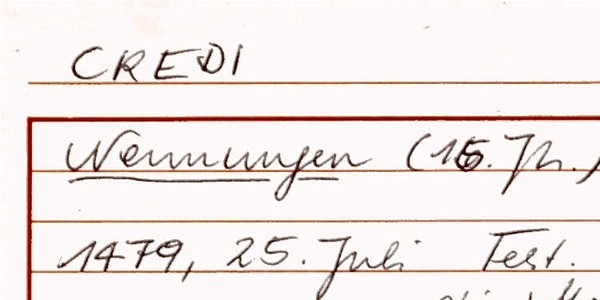 CREDI
Nennungen (15. Jh.)
1479, 25. Juli Test.